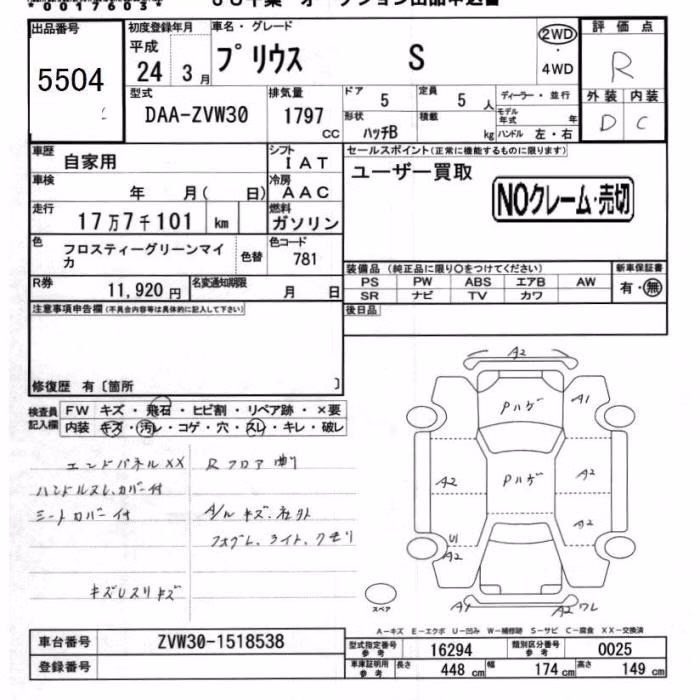 *00176034
出品番号
5504
初度登録年月
平成
24 3月
車名・グレード
プリウス S
2WD
・
4WD
評価点
R
外装 内装
D C
型式
DAA-ZVW30
排気量
1797
CC
ドア
5
定員
5 人
ディーラー・並行
モデル年式 年
形状
ハッチB
積載
kg
ハンドル 左・右
車歴
自家用
シフト
IAT
車検
年 月( 日)
冷房
AAC
走行
17万7千101 km
燃料
ガソリン
色
フロスティーグリーンマイ
カ
色替
色コード
781
R券
11,920 円
名変通知期限
月 日
セールスポイント(正常に機能するものに限ります)
ユーザー買取
NOクレーム・売切
装備品(純正品に限り○をつけてください)
PS PW ABS エアB AW
SR ナビ TV カワ
新車保証書
有・無
後日品
注意事項申告欄(不具合内容等は具体的に記入して下さい)
修復歴 有〔箇所 〕
検査員
記入欄
FW キズ・飛石・ヒビ割・リペア跡・×要
内装 キズ・汚レ・コゲ・穴・スレ・キレ・破レ
エンドパネルXX
Rフロア曲り
ハンドルスレ、カバー付
シートカバー付
A/W キズ、社外
フォグレ、ライト、クモリ
キズUスリキズ
A2
Pハゲ
A1
A2
Pハゲ
A2
A2
U1
A2
A1
A2 ワレ
スペア
A－キズ E－エクボ U－凹み W－補修跡 S－サビ C－腐食 XX－交換済
車台番号
ZVW30-1518538
登録番号
型式指定番号
参考
16294
類別区分番号
参考
0025
車庫証明用
参考
長さ
448 cm
幅
174 cm
高さ
149 cm